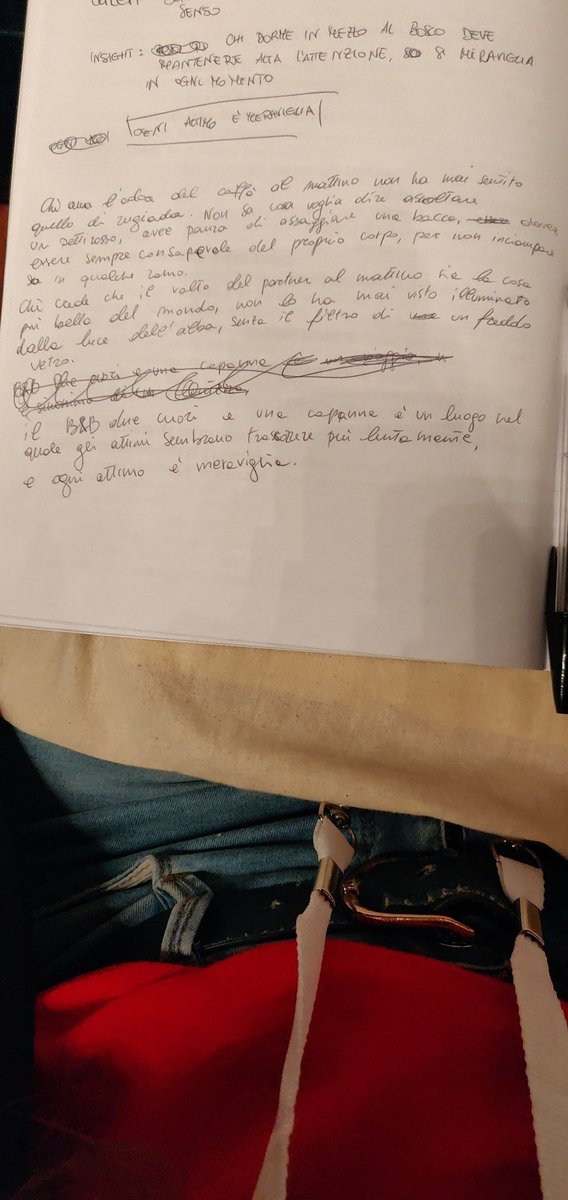 SENSO
INSIGHT: CHI DORME IN MEZZO AL BOSCO DEVE
MANTENERE ALTA L'ATTENZIONE, SI MERAVIGLIA
IN OGNI MOMENTO
OGNI ATTIMO È MERAVIGLIA
Chi ama l'odore del caffè al mattino non ha mai sentito
quello di rugiada. Non sa cosa voglia dire ascoltare
un pettirosso, avere paura di assaggiare una bacca, dovere
essere sempre consapevole del proprio corpo, per non inciampare
in qualche ramo.
Chi crede che il volto del partner al mattino sia la cosa
più bella del mondo, non lo ha mai visto illuminato
dalla luce dell'alba, senza il filtro di un freddo
vetro.
il B&B due cuori e una capanna è un luogo nel
quale gli attimi sembrano trascorrere più lentamente,
e ogni attimo è meraviglia.